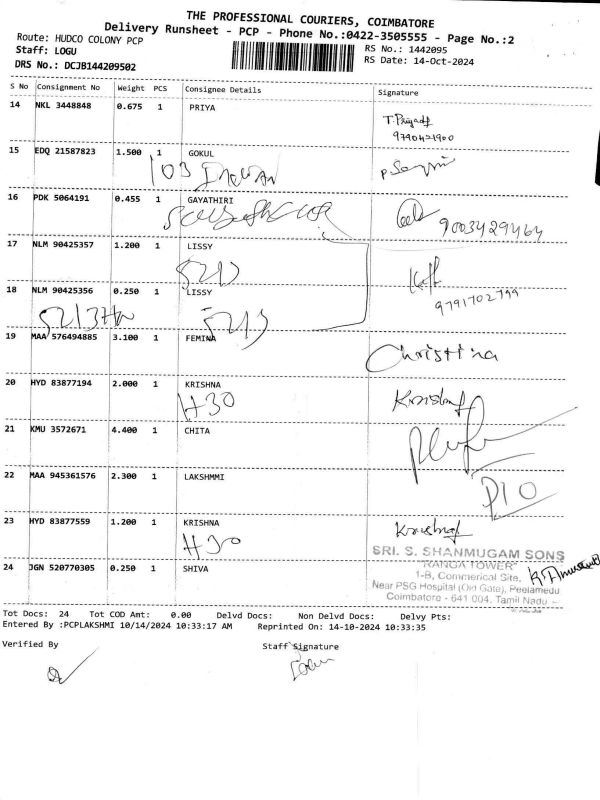 THE PROFESSIONAL COURIERS, COIMBATORE
Delivery Runsheet - PCP - Phone No.:0422-3505555 - Page No.:2
Route: HUDCO COLONY PCP
RS No.: 1442095
Staff: LOGU
RS Date: 14-Oct-2024
DRS No.: DCJB144209502
S No Consignment No Weight PCS Consignee Details Signature
14 NKL 3448848 0.675 1 PRIYA
15 EDQ 21587823 1.500 1 GOKUL
103
16 PDK 5064191 0.455 1 GAYATHIRI
9003429464
17 NLM 90425357 1.200 1 LISSY
5213
18 NLM 90425356 0.250 1 LISSY
9791702799
5213
19 MAA 576494885 3.100 1 FEMINA
Christina
20 HYD 83877194 2.000 1 KRISHNA
H30
21 KMU 3572671 4.400 1 CHITA
22 MAA 945361576 2.300 1 LAKSHMMI
P10
23 HYD 83877559 1.200 1 KRISHNA
H30
SRI. S. SHANMUGAM SONS
"RANGA TOWER"
24 JGN 520770305 0.250 1 SHIVA
1-B, Commerical Site,
Near PSG Hospital (Old Gate), Peelamedu
Coimbatore - 641 004. Tamil Nadu
Tot Docs: 24 Tot COD Amt: 0.00 Delvd Docs: Non Delvd Docs: Delvy Pts:
Entered By :PCPLAKSHMI 10/14/2024 10:33:17 AM Reprinted On: 14-10-2024 10:33:35
Verified By Staff Signature